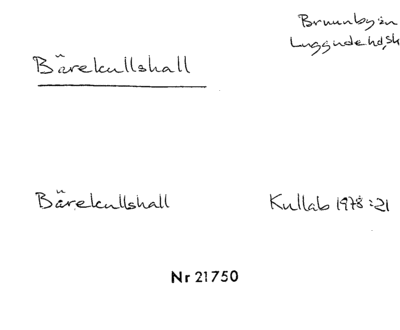 Brunnby sn
Luggude hd, Sk
Bärekullshall
Bärekullshall Kullab 1978:21
Nr 21750